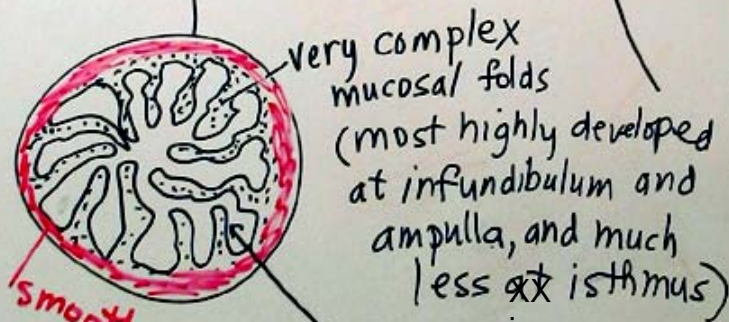 very complex
mucosal folds
(most highly developed
at infundibulum and
ampulla, and much
less at isthmus)